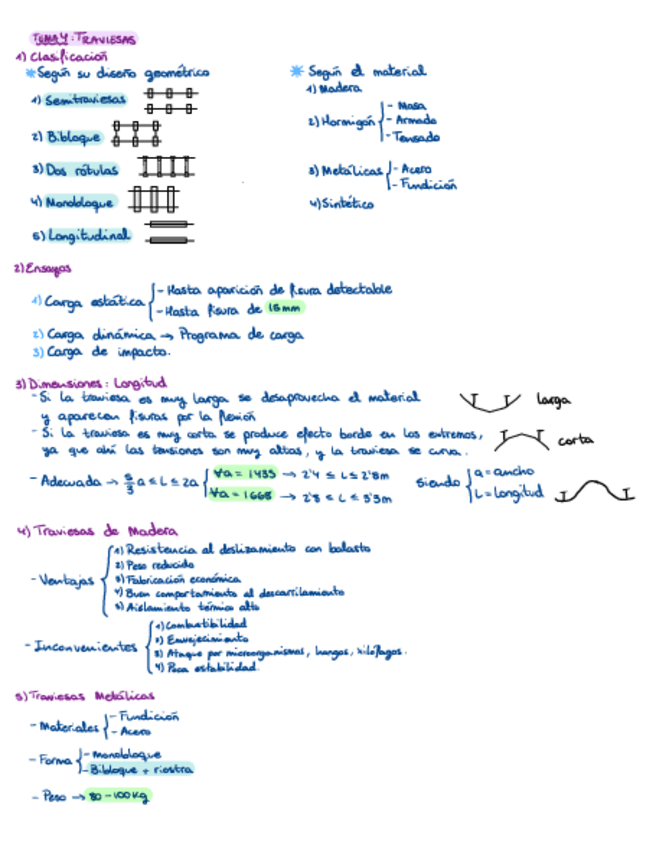 TEMA 4: TRAVIESAS
1) Clasificación
* Según su diseño geométrico
1) Semitraviesas
2) Bibloque
3) Dos rótulas
4) Monobloque
5) Longitudinal
* Según el material
1) Madera
2) Hormigón
- Masa
- Armado
- Tensado
3) Metálicas
- Acero
- Fundición
4) Sintético
2) Ensayos
1) Carga estática
- Hasta aparición de fisura detectable
- Hasta fisura de
2) Carga dinámica → Programa de carga
3) Carga de impacto.
3) Dimensiones: Longitud
- Si la traviesa es muy larga se desaprovecha el material
y aparecen fisuras por la flexión
larga
- Si la traviesa es muy corta se produce efecto borde en los extremos,
ya que ahí las tensiones son muy altas, y la traviesa se curva.
corta
- Adecuada → 5/3 a ≤ L ≤ 2a
∀a = 1435 → 2'4 ≤ L ≤ 2'8m
∀a = 1668 → 2'8 ≤ L ≤ 3'3m
siendo
a = ancho
L = longitud
4) Traviesas de Madera
- Ventajas
1) Resistencia al deslizamiento con balasto
2) Peso reducido
3) Fabricación económica
4) Buen comportamiento al descarrilamiento
5) Aislamiento térmico alto
- Inconvenientes
1) Combustibilidad
2) Envejecimiento
3) Ataque por microorganismos, hongos, xilófagos.
4) Poca estabilidad.
5) Traviesas Metálicas
- Materiales
- Fundición
- Acero
- Forma
- monobloque
- Bibloque + riostra
- Peso → 80-100kg